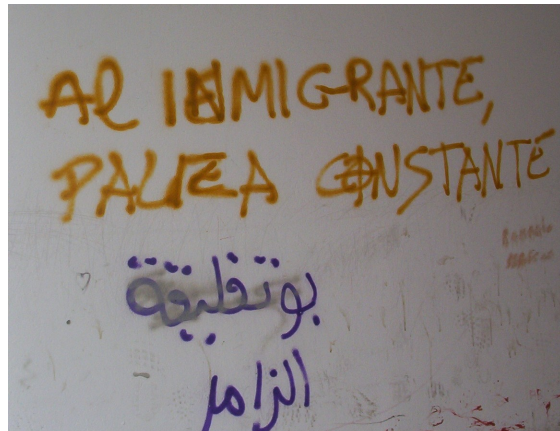 AL INMIGRANTE,
PALIZA CONSTANTE
بوتفليقة
الزامر